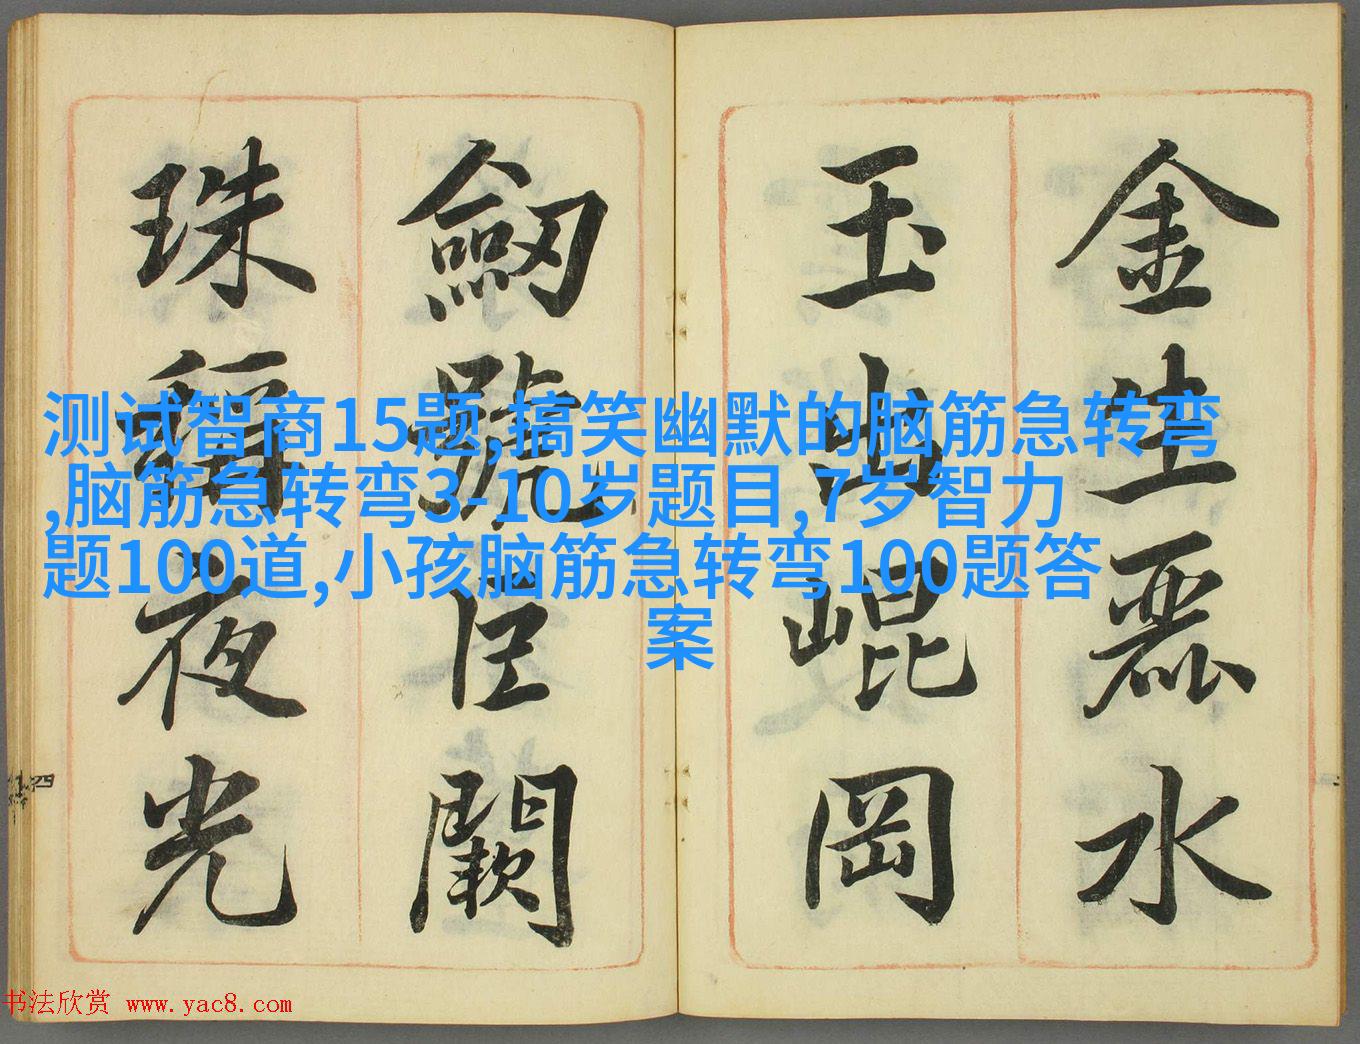 金生麗水
玉出崐岡
劔號巨闕
珠稱夜光
测试智商15题,搞笑幽默的脑筋急转弯
,脑筋急转弯3-10岁题目,7岁智力
题100道,小孩脑筋急转弯100题答
案
四
书法欣赏 www.yac8.com